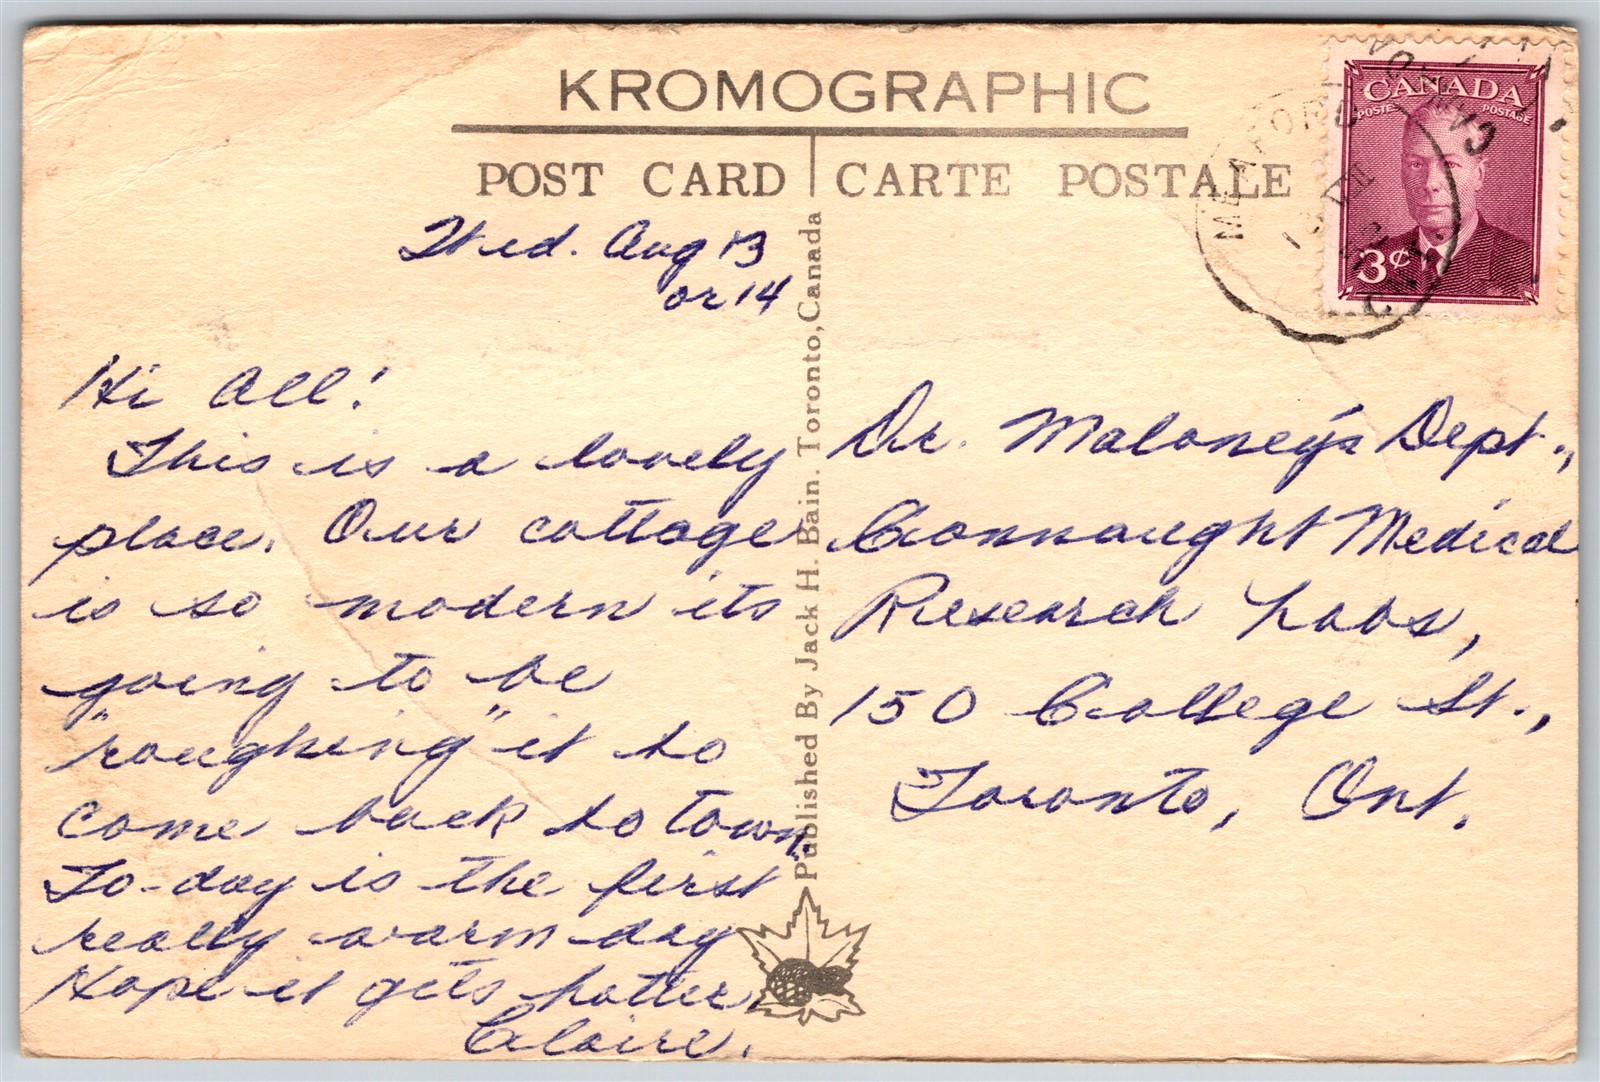 KROMOGRAPHIC
POST CARD
CARTE POSTALE
CANADA
POSTES POSTAGE
3¢
MEAFORD
Wed. Aug 13
or 14
Hi All!
This is a lovely
place. Our cottage
is so modern its
going to be
"roughing" it to
come back to town.
To-day is the first
really warm day
Hope it gets hotter.
Claire.
Published By Jack H. Bain. Toronto, Canada
Dr. Maloney's Dept.,
Connaught Medical
Research Labs,
150 College St.,
Toronto, Ont.